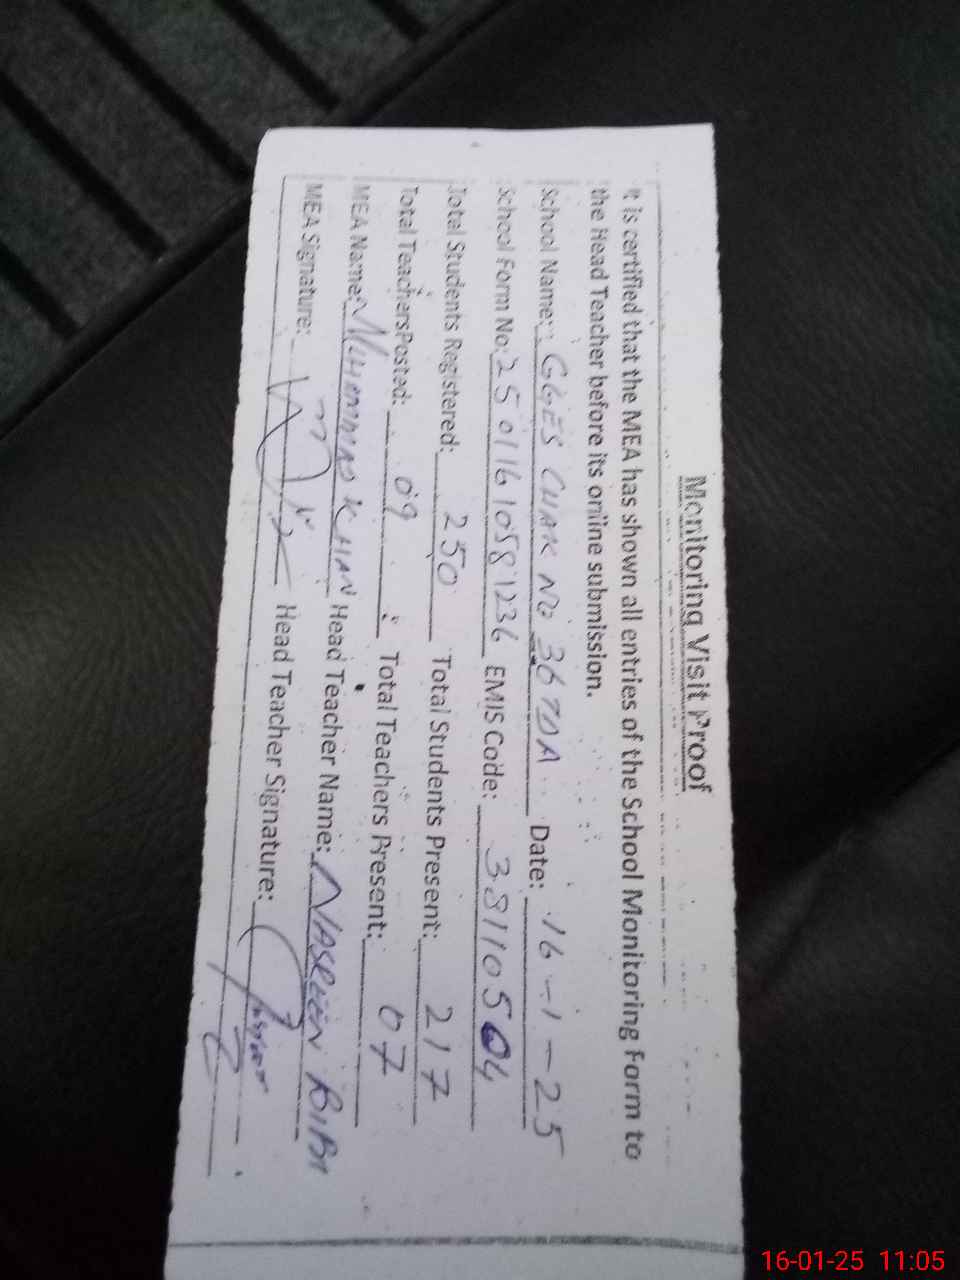 Monitoring Visit Proof
It is certified that the MEA has shown all entries of the School Monitoring Form to
the Head Teacher before its online submission.
School Name: GGES CHAK NO 36 TDA Date: 16-1-25
School Form No: 25011610581236 EMIS Code: 38110504
Total Students Registered: 250 Total Students Present: 217
Total Teachers Posted: 09 Total Teachers Present: 07
MEA Name: MUHAMMAD KHAN Head Teacher Name: NASREEN BIBI
MEA Signature: Head Teacher Signature:
16-01-25 11:05